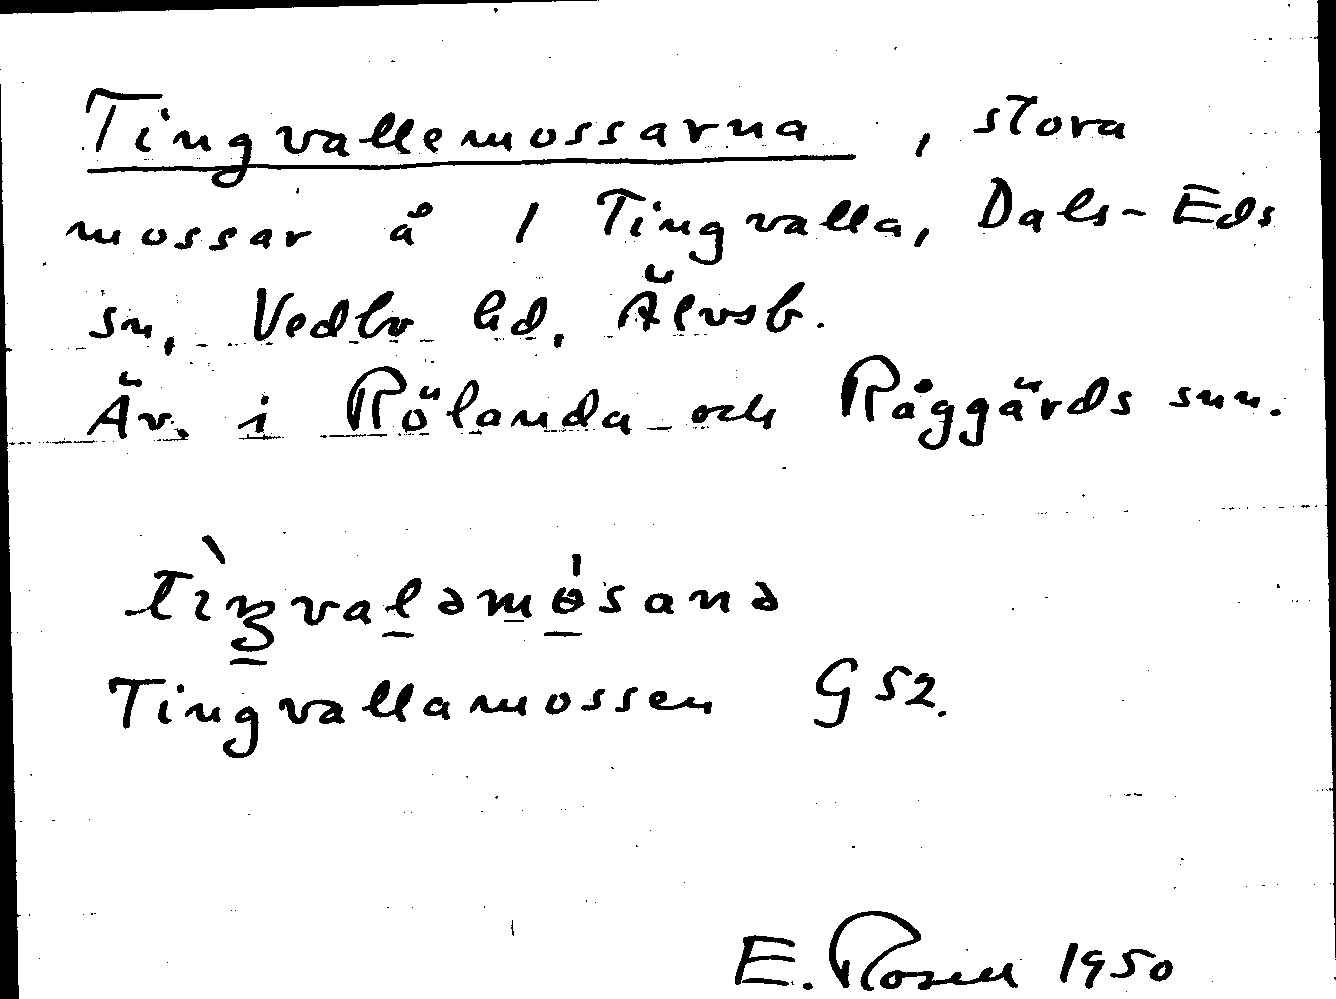 Tingvallemossarna, stora
mossar å 1 Tingvalla, Dals-Eds
sn, Vedbo hd, Älvsb.
Äv. i Rölanda och Råggärds snr.
tìŋvaləmɵ́sanə
Tingvallamossen G 52.
E. Rosell 1950